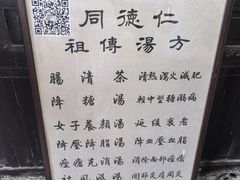 同德仁
祖傳湯方
腸清茶 清熱瀉火減肥
降糖湯 輕中型糖尿病
女子養顏湯 延緩衰老
降壓降脂湯 降血壓血脂
痤瘡充消湯 消除面部痤瘡